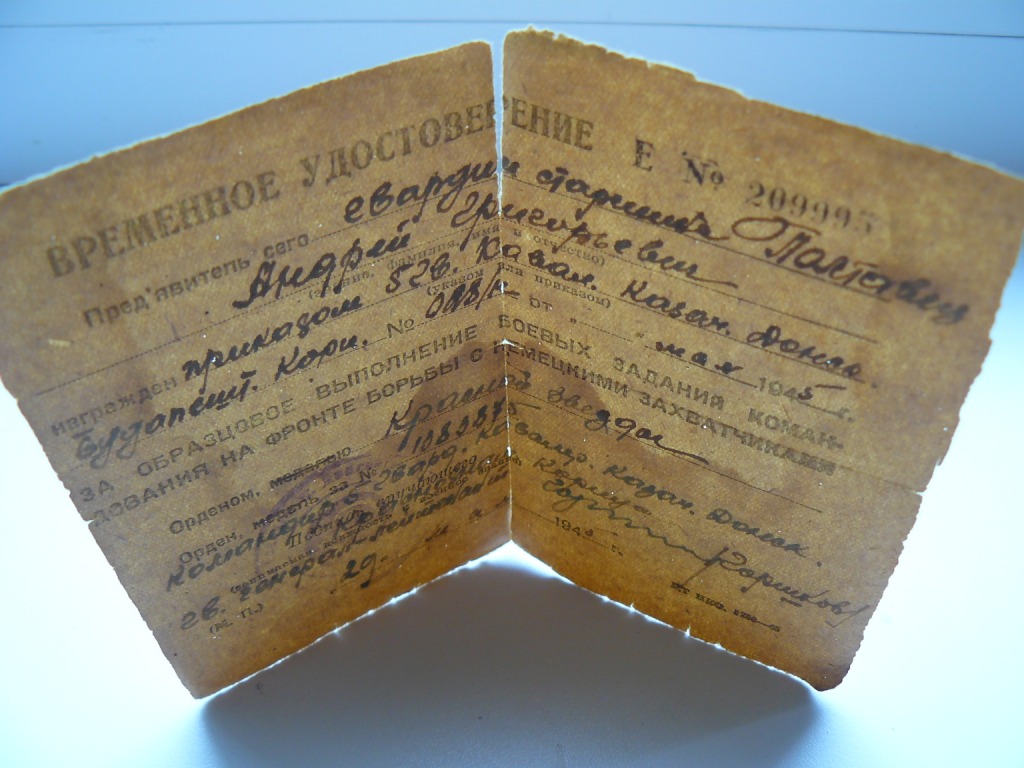 ВРЕМЕННОЕ УДОСТОВЕРЕНИЕ Е № 209995
Пред'явитель сего гвардии старшина Полтавец
Андрей Григорьевич
(звание, фамилия, имя и отчество)
награжден приказом 5 гв. Кавал. Казач. Донск.
(указом или приказом)
Будапешт. Корп. № 018/н от " " мая 1945 г.
ЗА ОБРАЗЦОВОЕ ВЫПОЛНЕНИЕ БОЕВЫХ ЗАДАНИЙ КОМАН-
ДОВАНИЯ НА ФРОНТЕ БОРЬБЫ С НЕМЕЦКИМИ ЗАХВАТЧИКАМИ
Орденом, медалью Красной Звезды
Орден, медаль за №
Командир 5 гвард. Кавалер. Казач. Донск.
Подпись вручающего
корпуса
гв. генерал-лейтенант Горшков/
(М. П.) 29. 194 г.